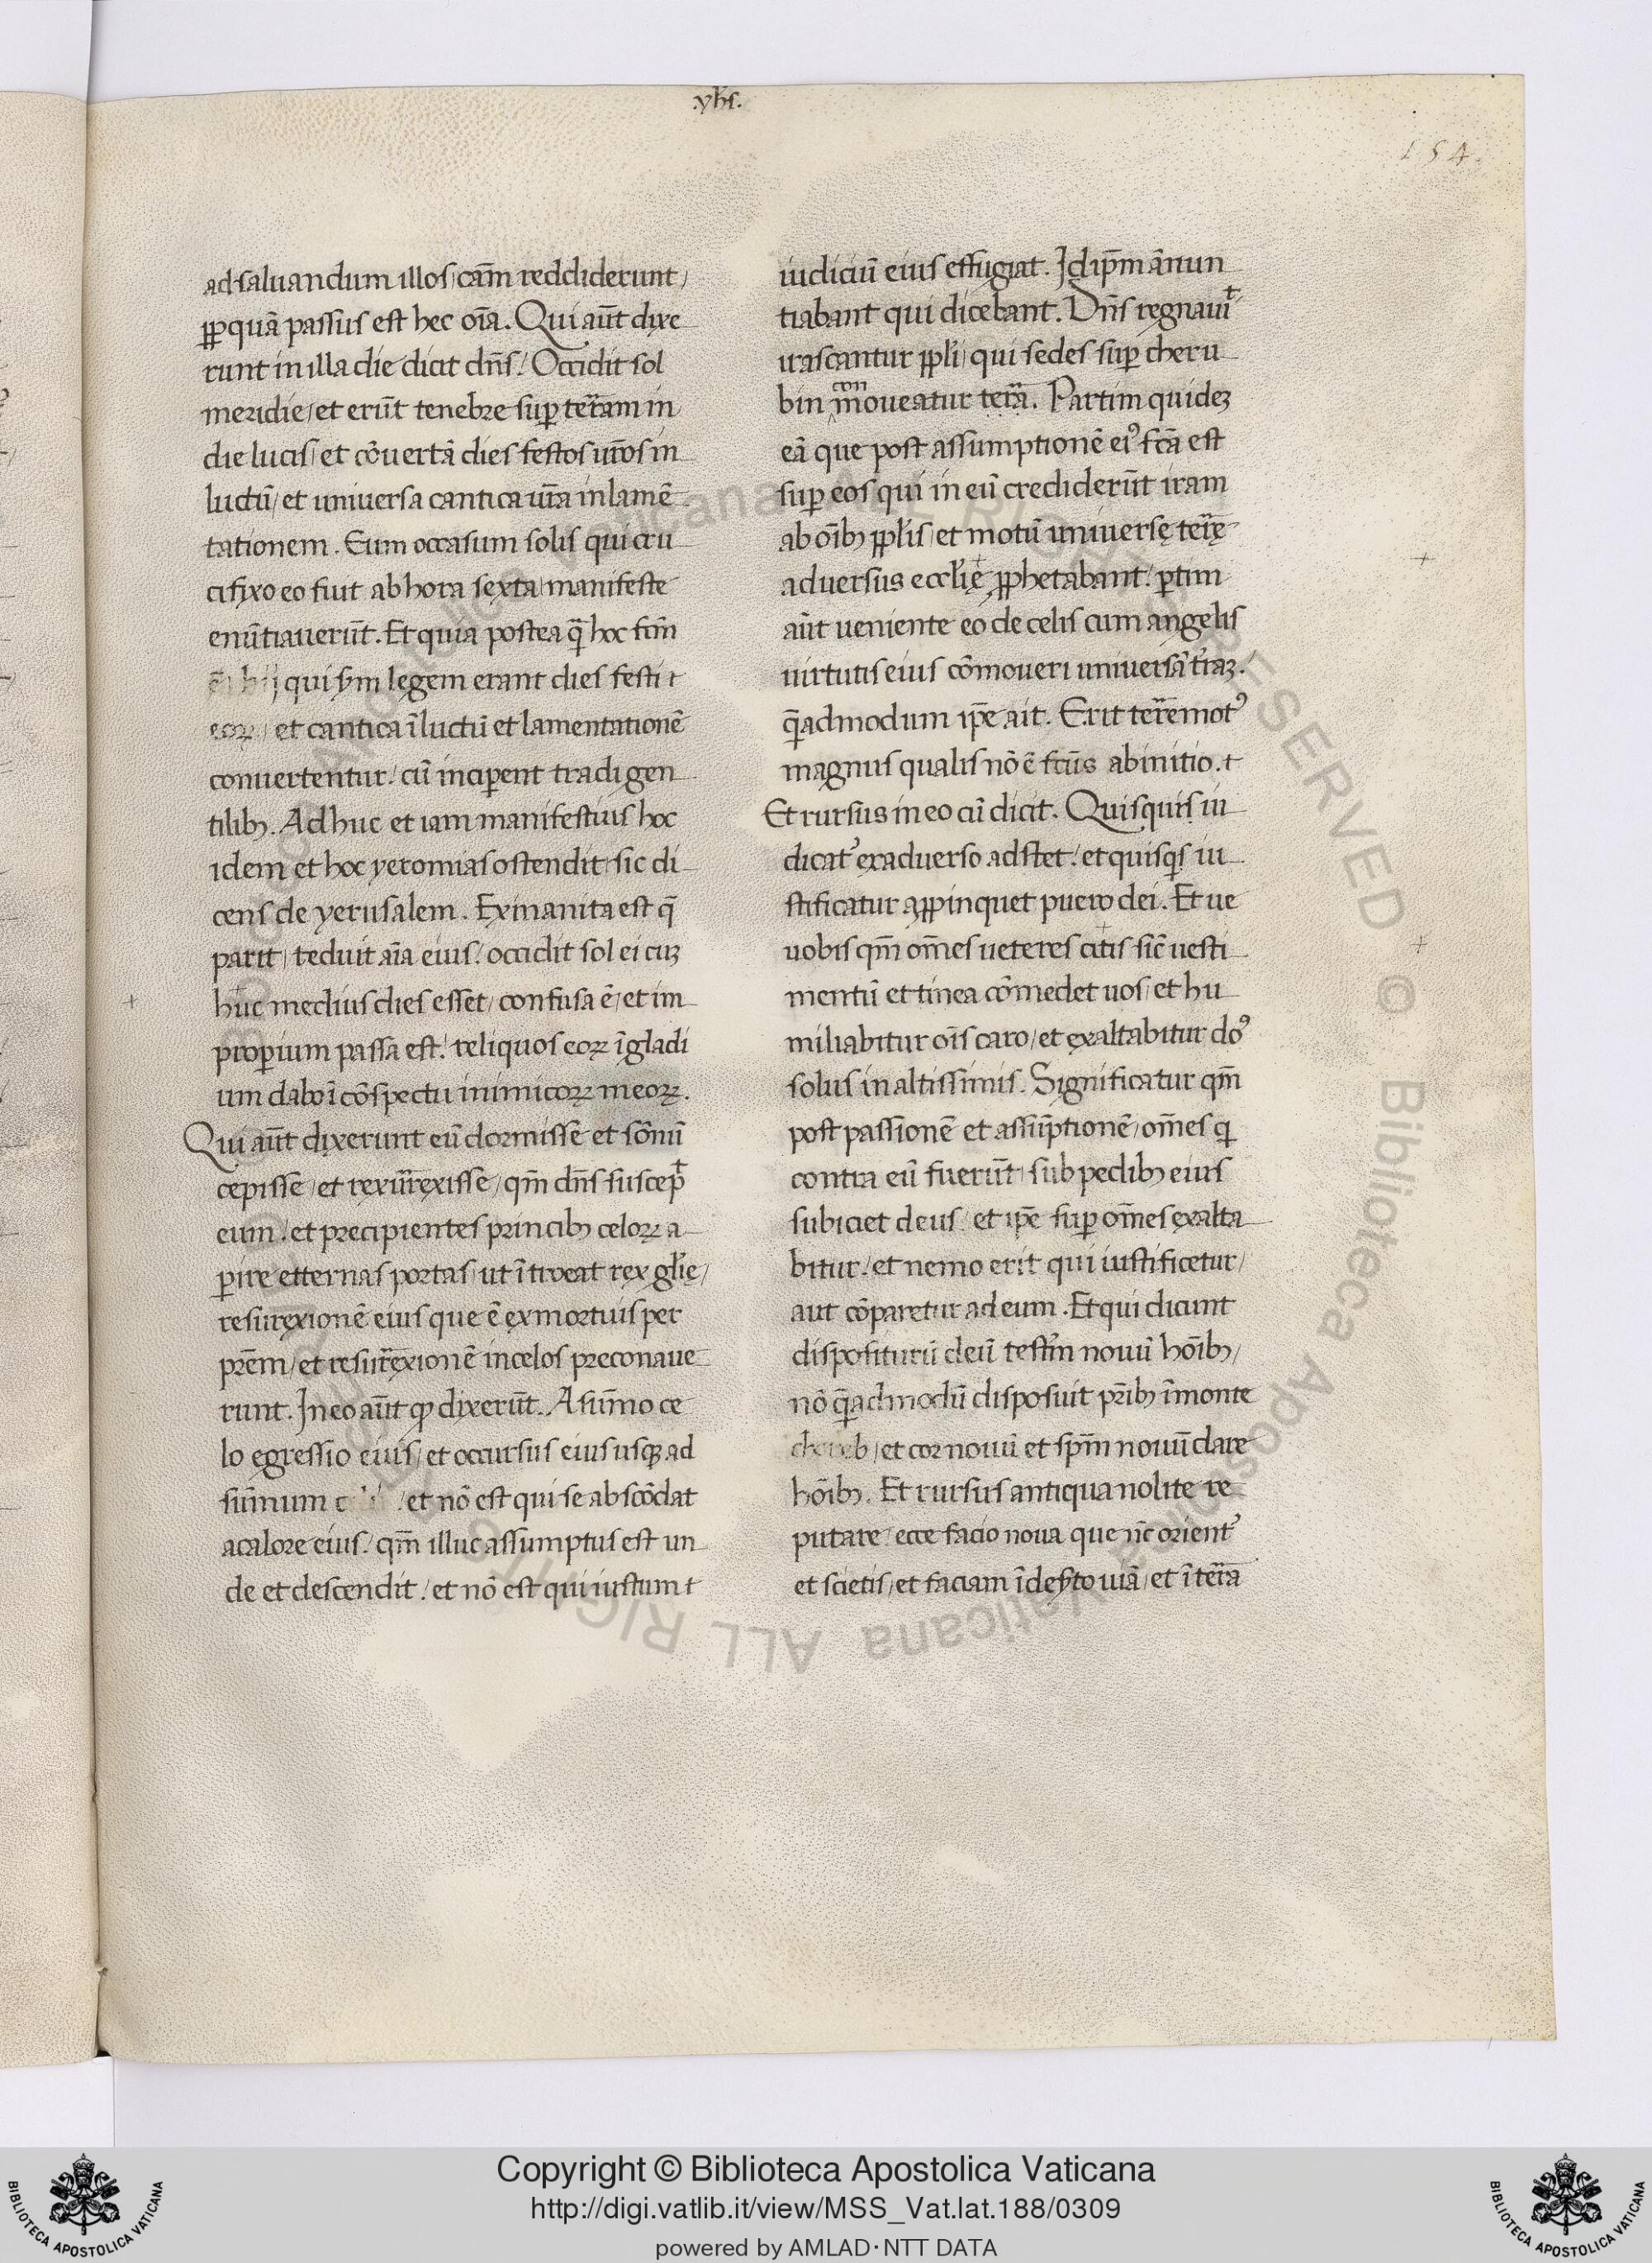 .yhs.
154.
ad saluandum illos, cām reddiderunt,
ꝓpquā passus est hec oīa. Qui aūt dixe
runt in illa die dicit dn̄s. Occidit sol
meridie, et erūt tenebre suꝑ terram in
die lucis, et cōuertā dies festos ur̄os in
luctū, et universa cantica ur̄a in lamē
tationem. Eum occasum solis qui cru
cifixo eo fuit ab hora sexta, manifeste
enūtiauerūt. Et quia postea q̄ hoc fcm̄
qui sꝫm legem erant dies festi ⁊
eoꝝ, et cantica ī luctū et lamentationē
conuertentur, cū inciꝑent tradi gen
tilibꝫ. Adhuc et iam manifestius hoc
idem et hoc yeromias ostendit, sic di
cens de yerusalem. Exinanita est q̄
parit, teduit aīa eius, occidit sol ei cuꝫ
huc medius dies esset, confusa ē, et im
proꝑium passa est, reliquos eoꝝ ī gladi
um dabo ī cōspectu inimicoꝝ meoꝝ.
Qui aūt dixerunt eū dormisse et sōnū
cepisse, et rexurrexisse, qm̄ dn̄s suscepᵗ
eum, et precipientes princibꝫ celoꝝ a
ꝑire etternas portas, ut ītroeat rex glīę,
resurexionē eius que ē ex mortuis per
prēm, et resurrexionē in celos preconaue
runt. In eo aūt qꝫ dixerūt. A sūmo ce
lo egressio eius, et occursus eius usqꝫ ad
sūmum et nō est qui se abscōdat
a calore eius, qm̄ illuc assumptus est un
de et descendit, et nō est qui iustum ⁊
iudiciū eius effugiat. Id ip̄m ānun
tiabant qui dicebant. Dn̄s regnauiᵗ
irascantur ppl̄i, qui sedes suꝑ cheru
bin com moueatur terra. Partim quideꝫ
eā que post assumptionē ei᾿ fcā est
suꝑ eos qui in eū crediderūt iram
ab oībꝫ ppl̄is, et motū universę terrę
adversus eccl̄ię ꝓphetabant, ꝑtim
aūt ueniente eo de celis cum angelis
uirtutis eius cōmoueri universā traꝫ.
q̄admodum ip̄e ait. Erit terremot᾿
magnus qualis nō ē fcūs ab initio. ⁊
Et rursus in eo cū dicit. Quisquis iu
dicat᾿ ex adverso adstet, et quisqs iu
stificatur apꝓpinquet puero dei. Et ue
uobis qm̄ om̄es ueteres citis sic̄ uesti
mentū et tinea cōmedet uos, et hu
miliabitur oīs caro, et exaltabitur do᾿
solus in altissimis. Significatur qm̄
post passionē et assūptionē, om̄es q
contra eū fuerūt, sub pedibꝫ eius
subiciet deus, et ip̄e suꝑ om̄es exalta
bitur, et nemo erit qui iustificetur,
aut cōparetur ad eum. Et qui dicunt
dispositurū deū testm̄ novū hōibꝫ,
nō q̄admodū disposuit pr̄ibꝫ ī monte
choreb, et cor nouū et spm̄ nouū dare
hōibꝫ. Et rursus antiqua nolite re
putare, ecce facio noua que nc̄ orient᾿
et scietis, et faciam ī deserto uiā, et ī terra
Copyright © Biblioteca Apostolica Vaticana
http://digi.vatlib.it/view/MSS_Vat.lat.188/0309
powered by AMLAD·NTT DATA
BIBLIOTECA APOSTOLICA VATICANA
BIBLIOTECA APOSTOLICA VATICANA